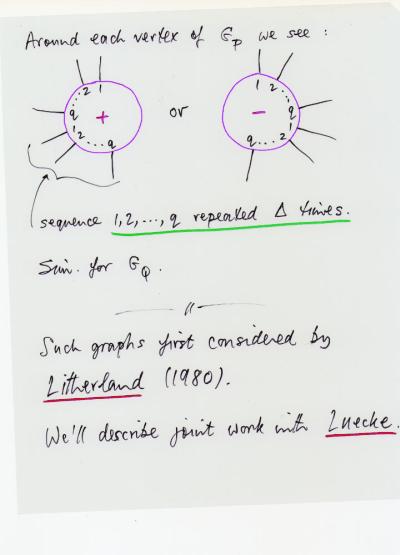 Around each vertex of G_P we see :
2 1 q 1 2 ... q + or 1 2 q 1 2 ... q −
sequence 1,2,...,q repeated Δ times.
Sim. for G_Q.
Such graphs first considered by
Litherland (1980).
We'll describe joint work with Luecke.